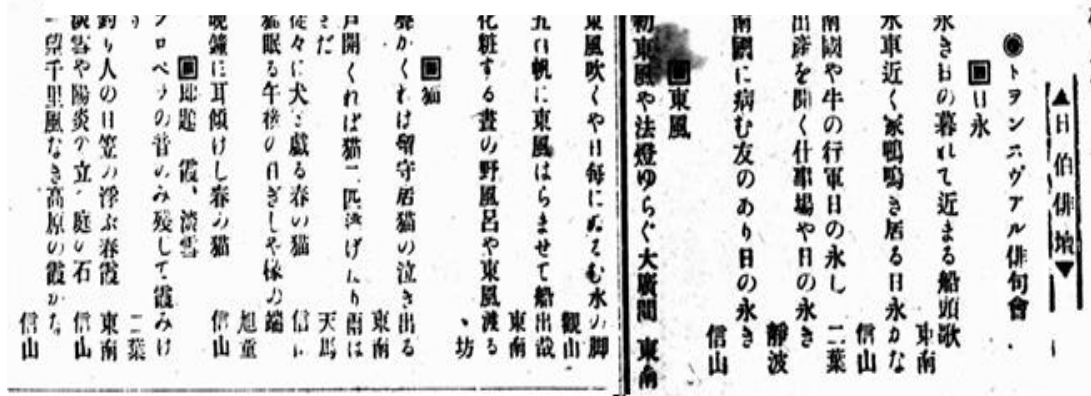 ▲日伯俳壇▼
◉トヲンニヴアル俳句會
▣日永
永き日の暮れて近まる船頭歌
東南
水車近く家鴨鳴き居る日永かな
信山
南國や牛の行軍日の永し
二葉
出産を聞く仕事場や日の永き
靜波
南國に病む友のあり日の永き
信山
▣東風
初東風や法燈ゆらぐ大廣間 東南
東風吹くや日毎にぬるむ水の脚
觀山
五百帆に東風はらませて船出哉
東南
化粧する晝の野風呂や東風渡る
、坊
▣猫
留守居猫の泣き出る
東南
戸開くれば猫二匹逃げたり雨は
まだ
天馬
徒々に犬と戯る春の猫
信山
猫眠る午後の日ざしや椽の端
旭童
晩鐘に耳傾けし春の猫
信山
▣即題 霞、淡雪
プロペラの音のみ残して霞みけ
り
二葉
釣り人の日笠の浮ぶ春霞
東南
淡雪や陽炎の立つ庭の石
信山
一望千里風なき高原の霞かな
信山